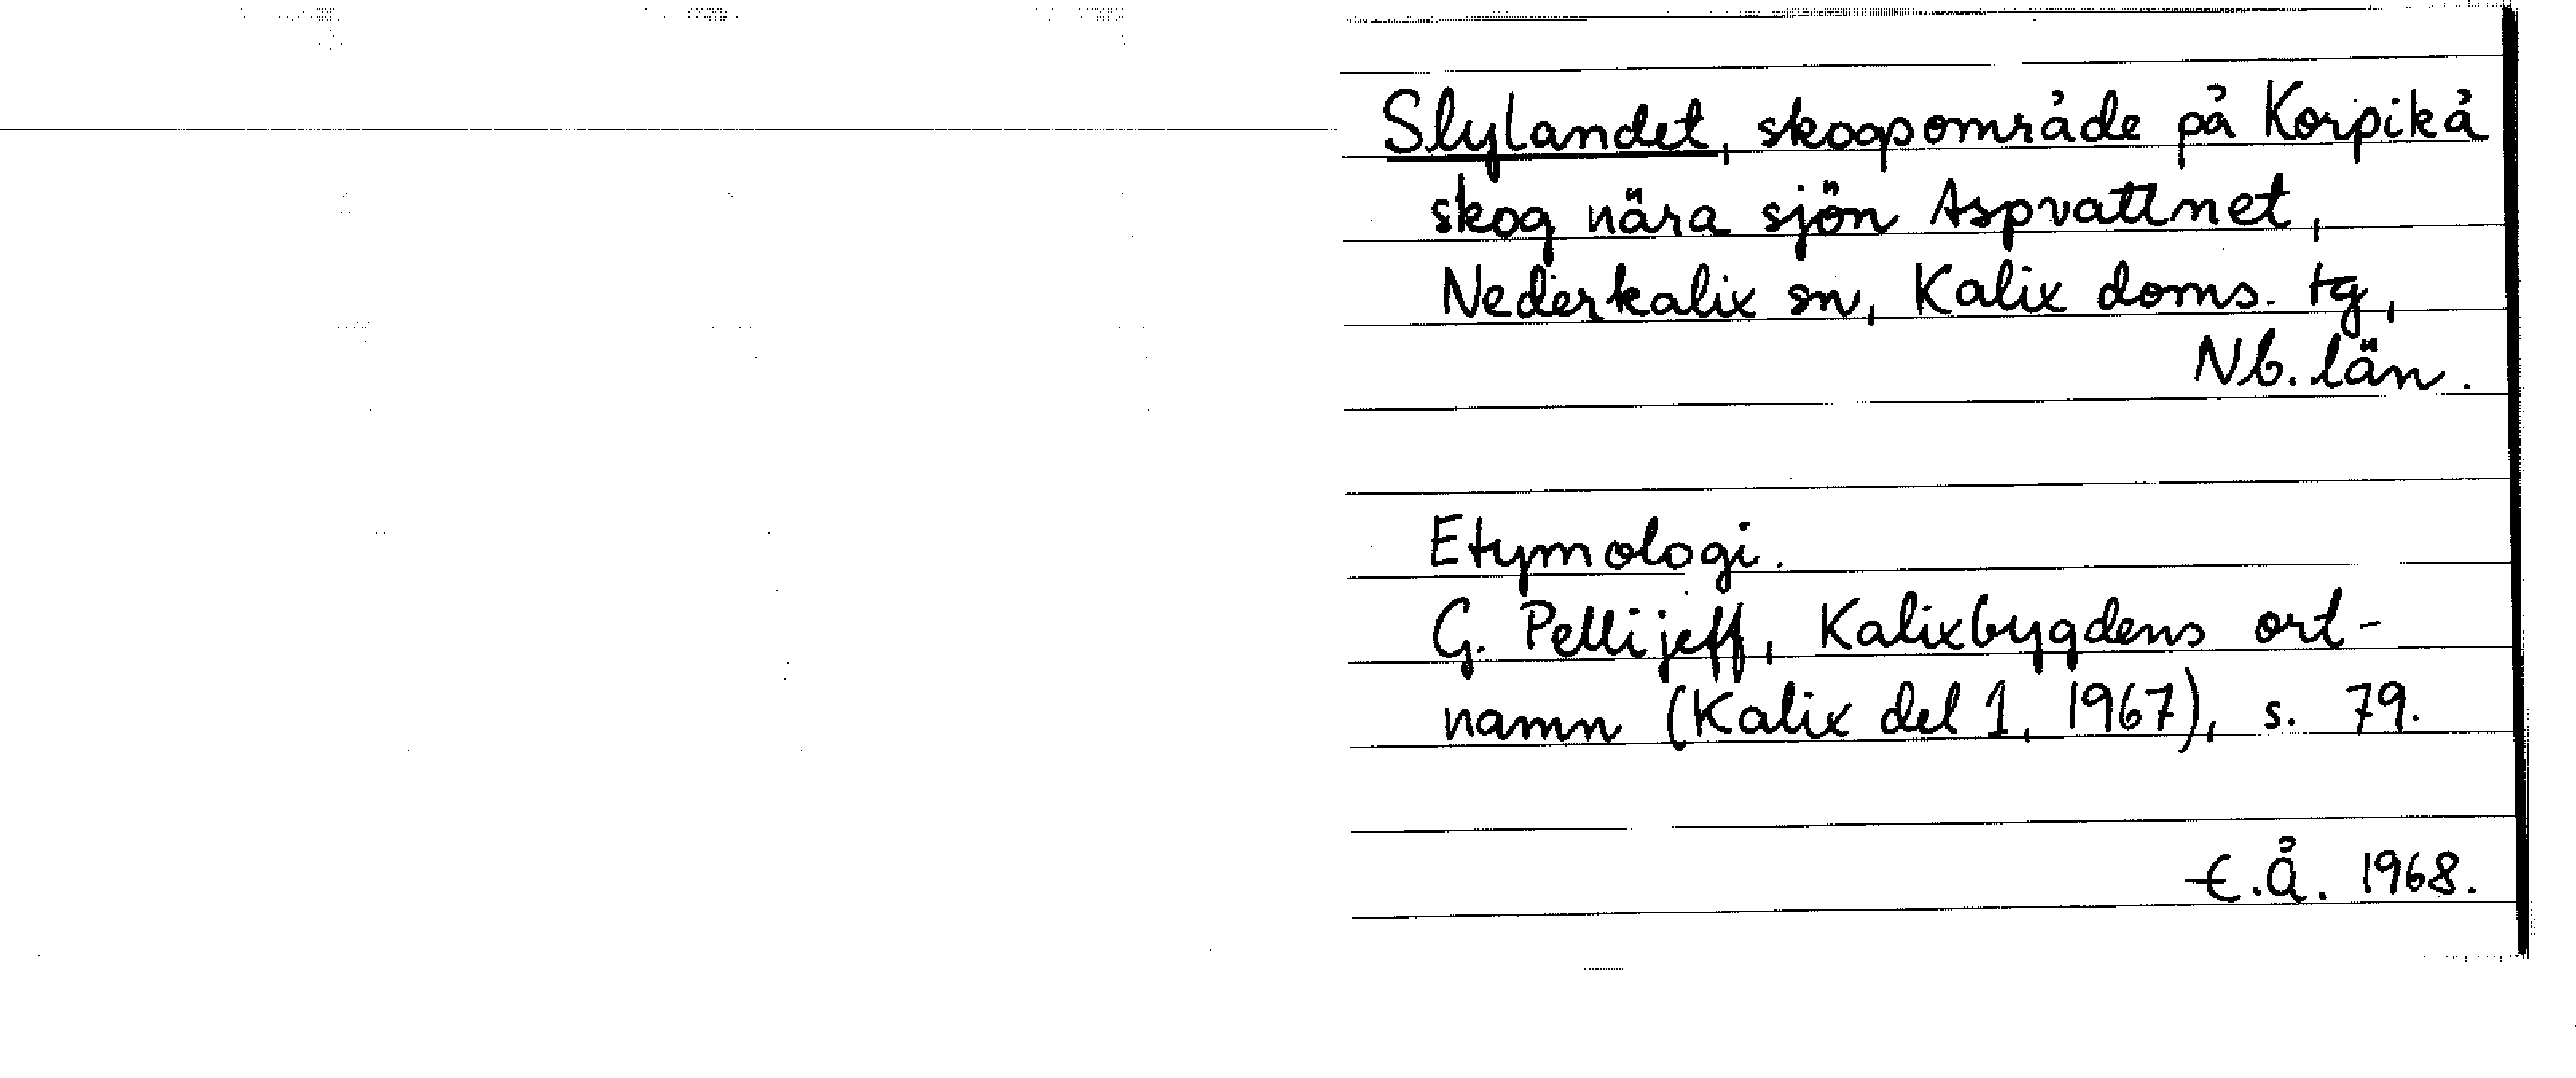 Slylandet, skogsområde på Korpikå
skog nära sjön Aspvattnet,
Nederkalix sn, Kalix doms. tg,
Nb. län.
Etymologi.
G. Pellijeff, Kalixbygdens ort-
namn (Kalix del 1, 1967), s. 79.
E.Å. 1968.